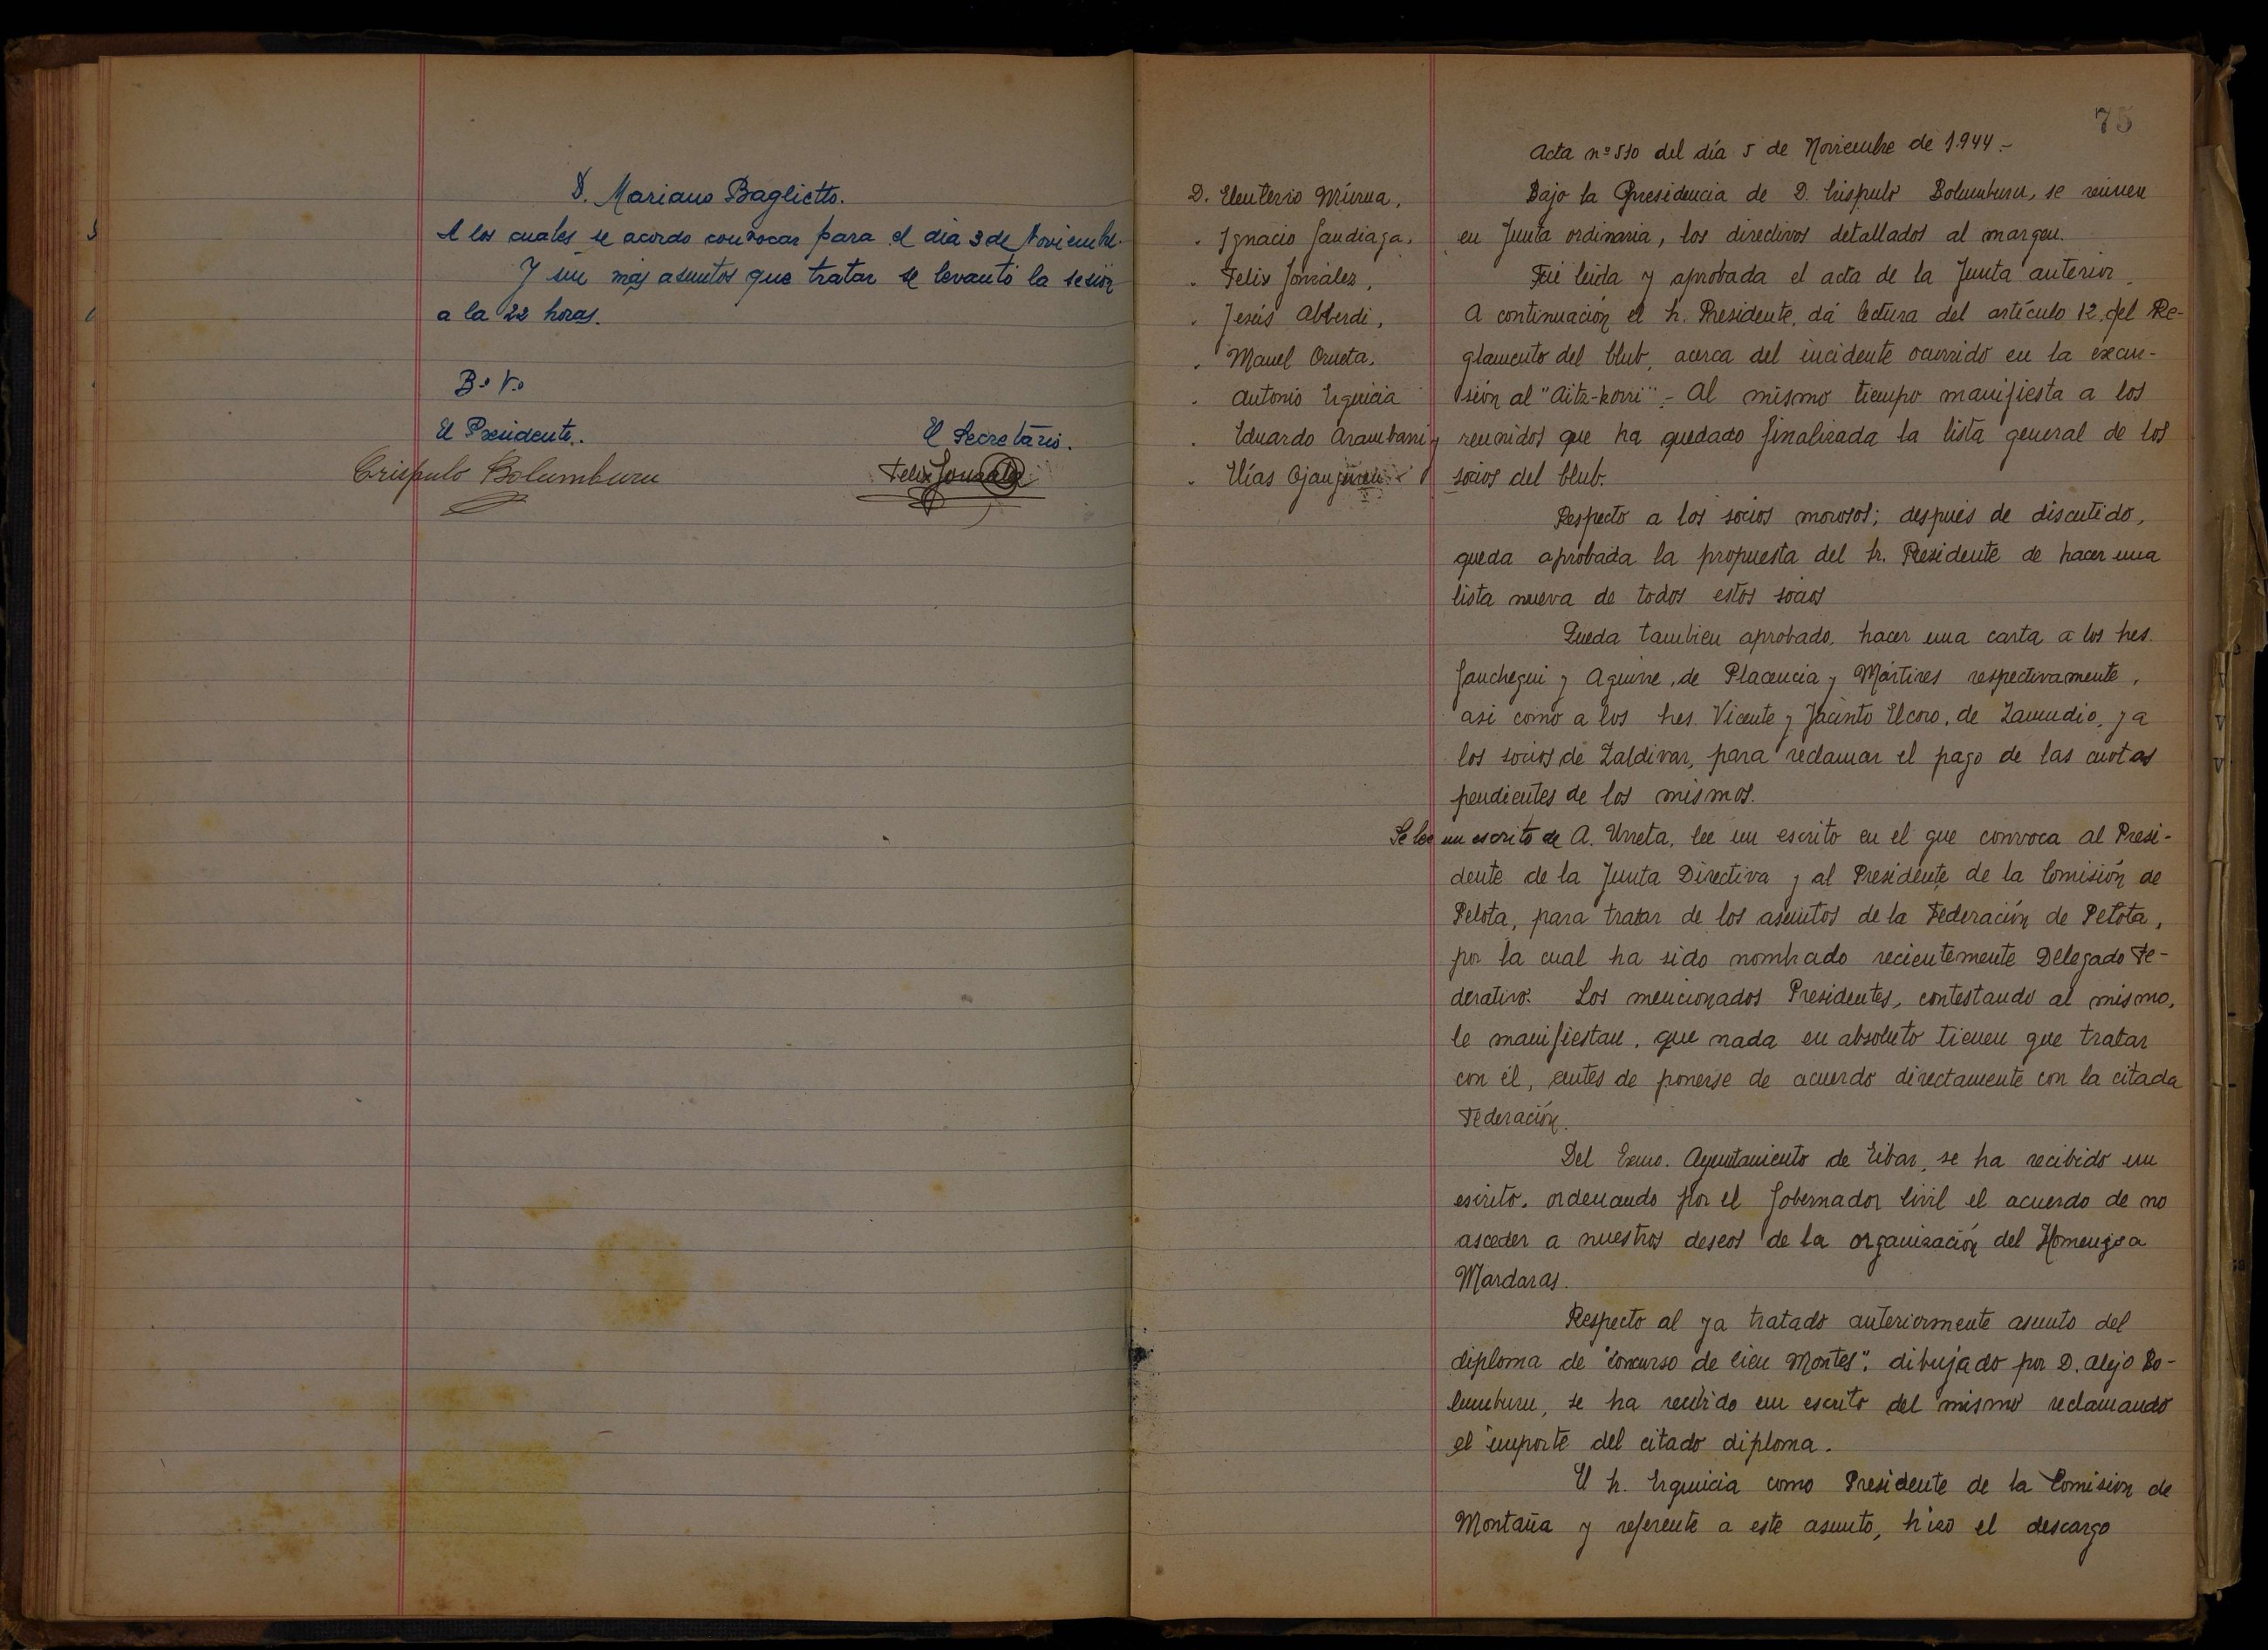 D. Mariano Baglietto.
A los cuales se acordo convocar para el dia 3 de Noviembre.
Y sin mas asuntos que tratar se levantó la sesión
a la 22 horas.
Bº Vº
El Presidente.
El Secretário.
Crispulo Bolumburu
Felix Gonzalez
75
Acta nº 510 del día 5 de Noviembre de 1.944.-
D. Eleuterio Múrua,
" Ignacio Gandiaga,
" Felix Gonzáles,
" Jesús Alberdi,
" Manel Orueta.
" Antonio Erquicia
" Eduardo Arambarri y
" Elías Ojanguren
Bajo la Presidencia de D. Crispulo Bolumburu, se reúnen
en Junta ordinaria, los directivos detallados al margen.
Fué leída y aprobada el acta de la Junta anterior.
A continuación el Sr. Presidente, dá lectura del artículo 12 del Re-
glamento del Club, acerca del incidente ocurrido en la excur-
sión al "Aitz-korri".- Al mismo tiempo manifiesta a los
reunidos que ha quedado finalizada la lista general de los
socios del Club.
Respecto a los socios morosos; después de discutido,
queda aprobada la propuesta del Sr. Presidente de hacer una
lista nueva de todos estos socios
Queda tambien aprobado, hacer una carta a los Sres.
Gauchegui y Aguirre, de Placencia y Mártires respectivamente,
asi como a los Sres. Vicente y Jacinto Elcoro, de Zamudio, y a
los socios de Zaldivar, para reclamar el pago de las cuotas
pendientes de los mismos.
Se lee un escrito de A. Urreta, lee un escrito en el que convoca al Presi-
dente de la Junta Directiva y al Presidente de la Comisión de
Pelota, para tratar de los asuntos de la Federación de Pelota,
por la cual ha sido nombrado recientemente Delegado Fe-
derativo. Los mencionados Presidentes, contestando al mismo,
le manifiestan, que nada en absoluto tienen que tratar
con él, antes de ponerse de acuerdo directamente con la citada
Federación.
Del Exmo. Ayuntamiento de Eibar, se ha recibido un
escrito, ordenando por el Gobernador Civil el acuerdo de no
asceder a nuestros deseos de la organización del Homenaje a
Mardaras.
Respecto al ya tratado anteriormente asunto del
diploma de "Concurso de Cien Montes", dibujado por D. Alejo Bo-
lumburu, se ha recibido un escrito del mismo reclamando
el importe del citado diploma.
El Sr. Erquicia como Presidente de la Comisión de
Montaña y referente a este asunto, hizo el descargo